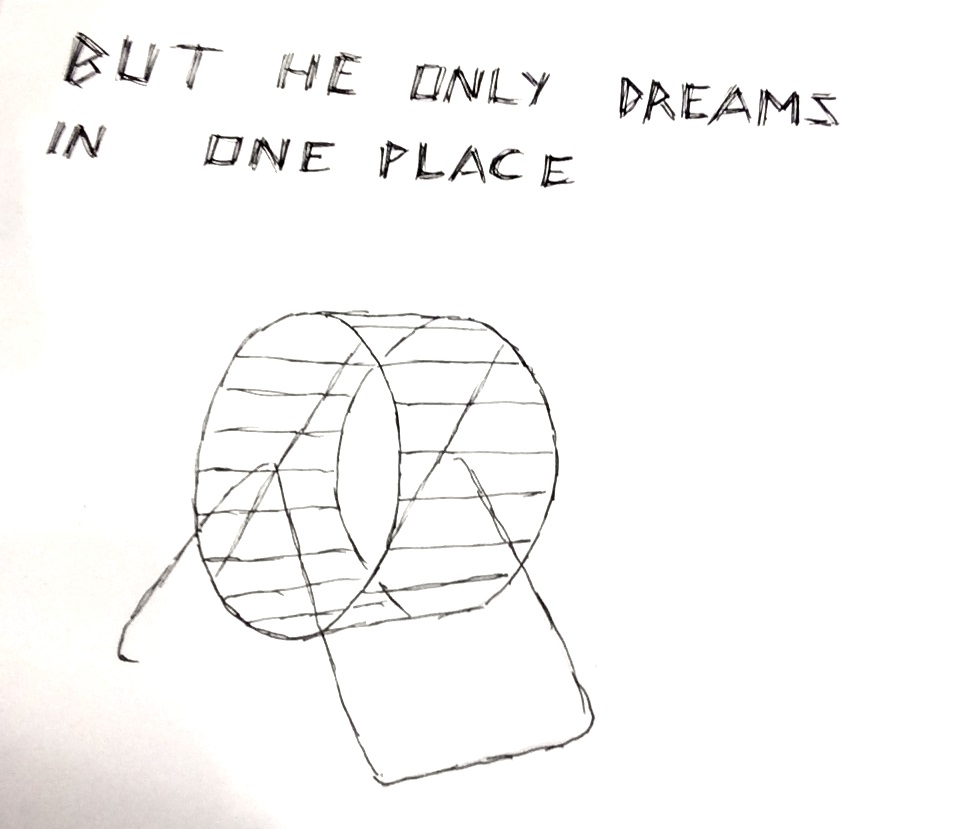 BUT HE ONLY DREAMS
IN ONE PLACE